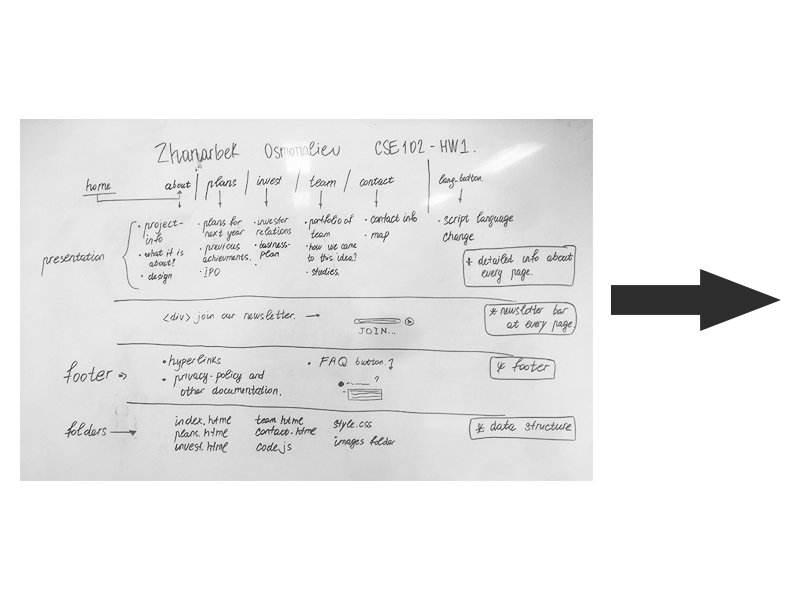 Zhanarbek Osmonaliev CSE102-HW1.
home about / plans / invest / team / contact lang-button.
presentation
• project-info
• what it is about?
• design
• plans for next year
• previous achievments.
• IPO
• investor relations
• business-plan
• portfolio of team
• how we came to this idea?
• studies.
• contact info
• map
• script language change
* detailed info about every page.
<div> join our newsletter. →
JOIN...
* newsletter bar at every page
footer →
• hyperlinks
• privacy-policy and other documentation.
• FAQ button.
?
* footer
folders →
index.html team.html style.css
plans.html contact.html images folder
invest.html code.js
* data structure